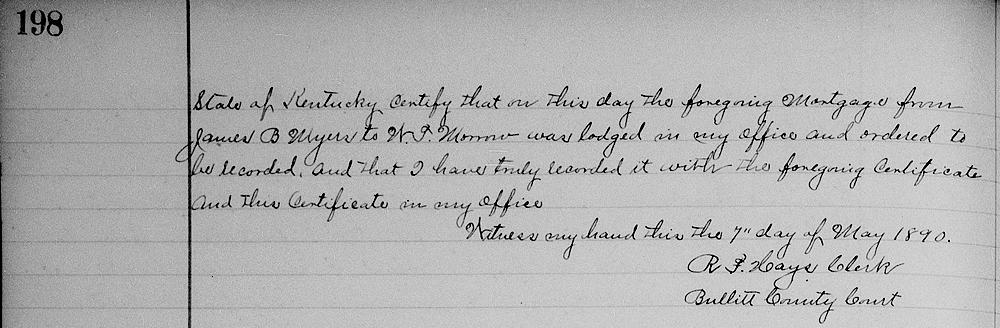 198
State of Kentucky Certify that on this day the foregoing Mortgage from
James B Myers to W. T. Morrow was lodged in my office and ordered to
be recorded. And that I have truly recorded it with the foregoing Certificate
and this Certificate in my office
Witness my hand this the 7" day of May 1890.
R F. Hays Clerk
Bullitt County Court